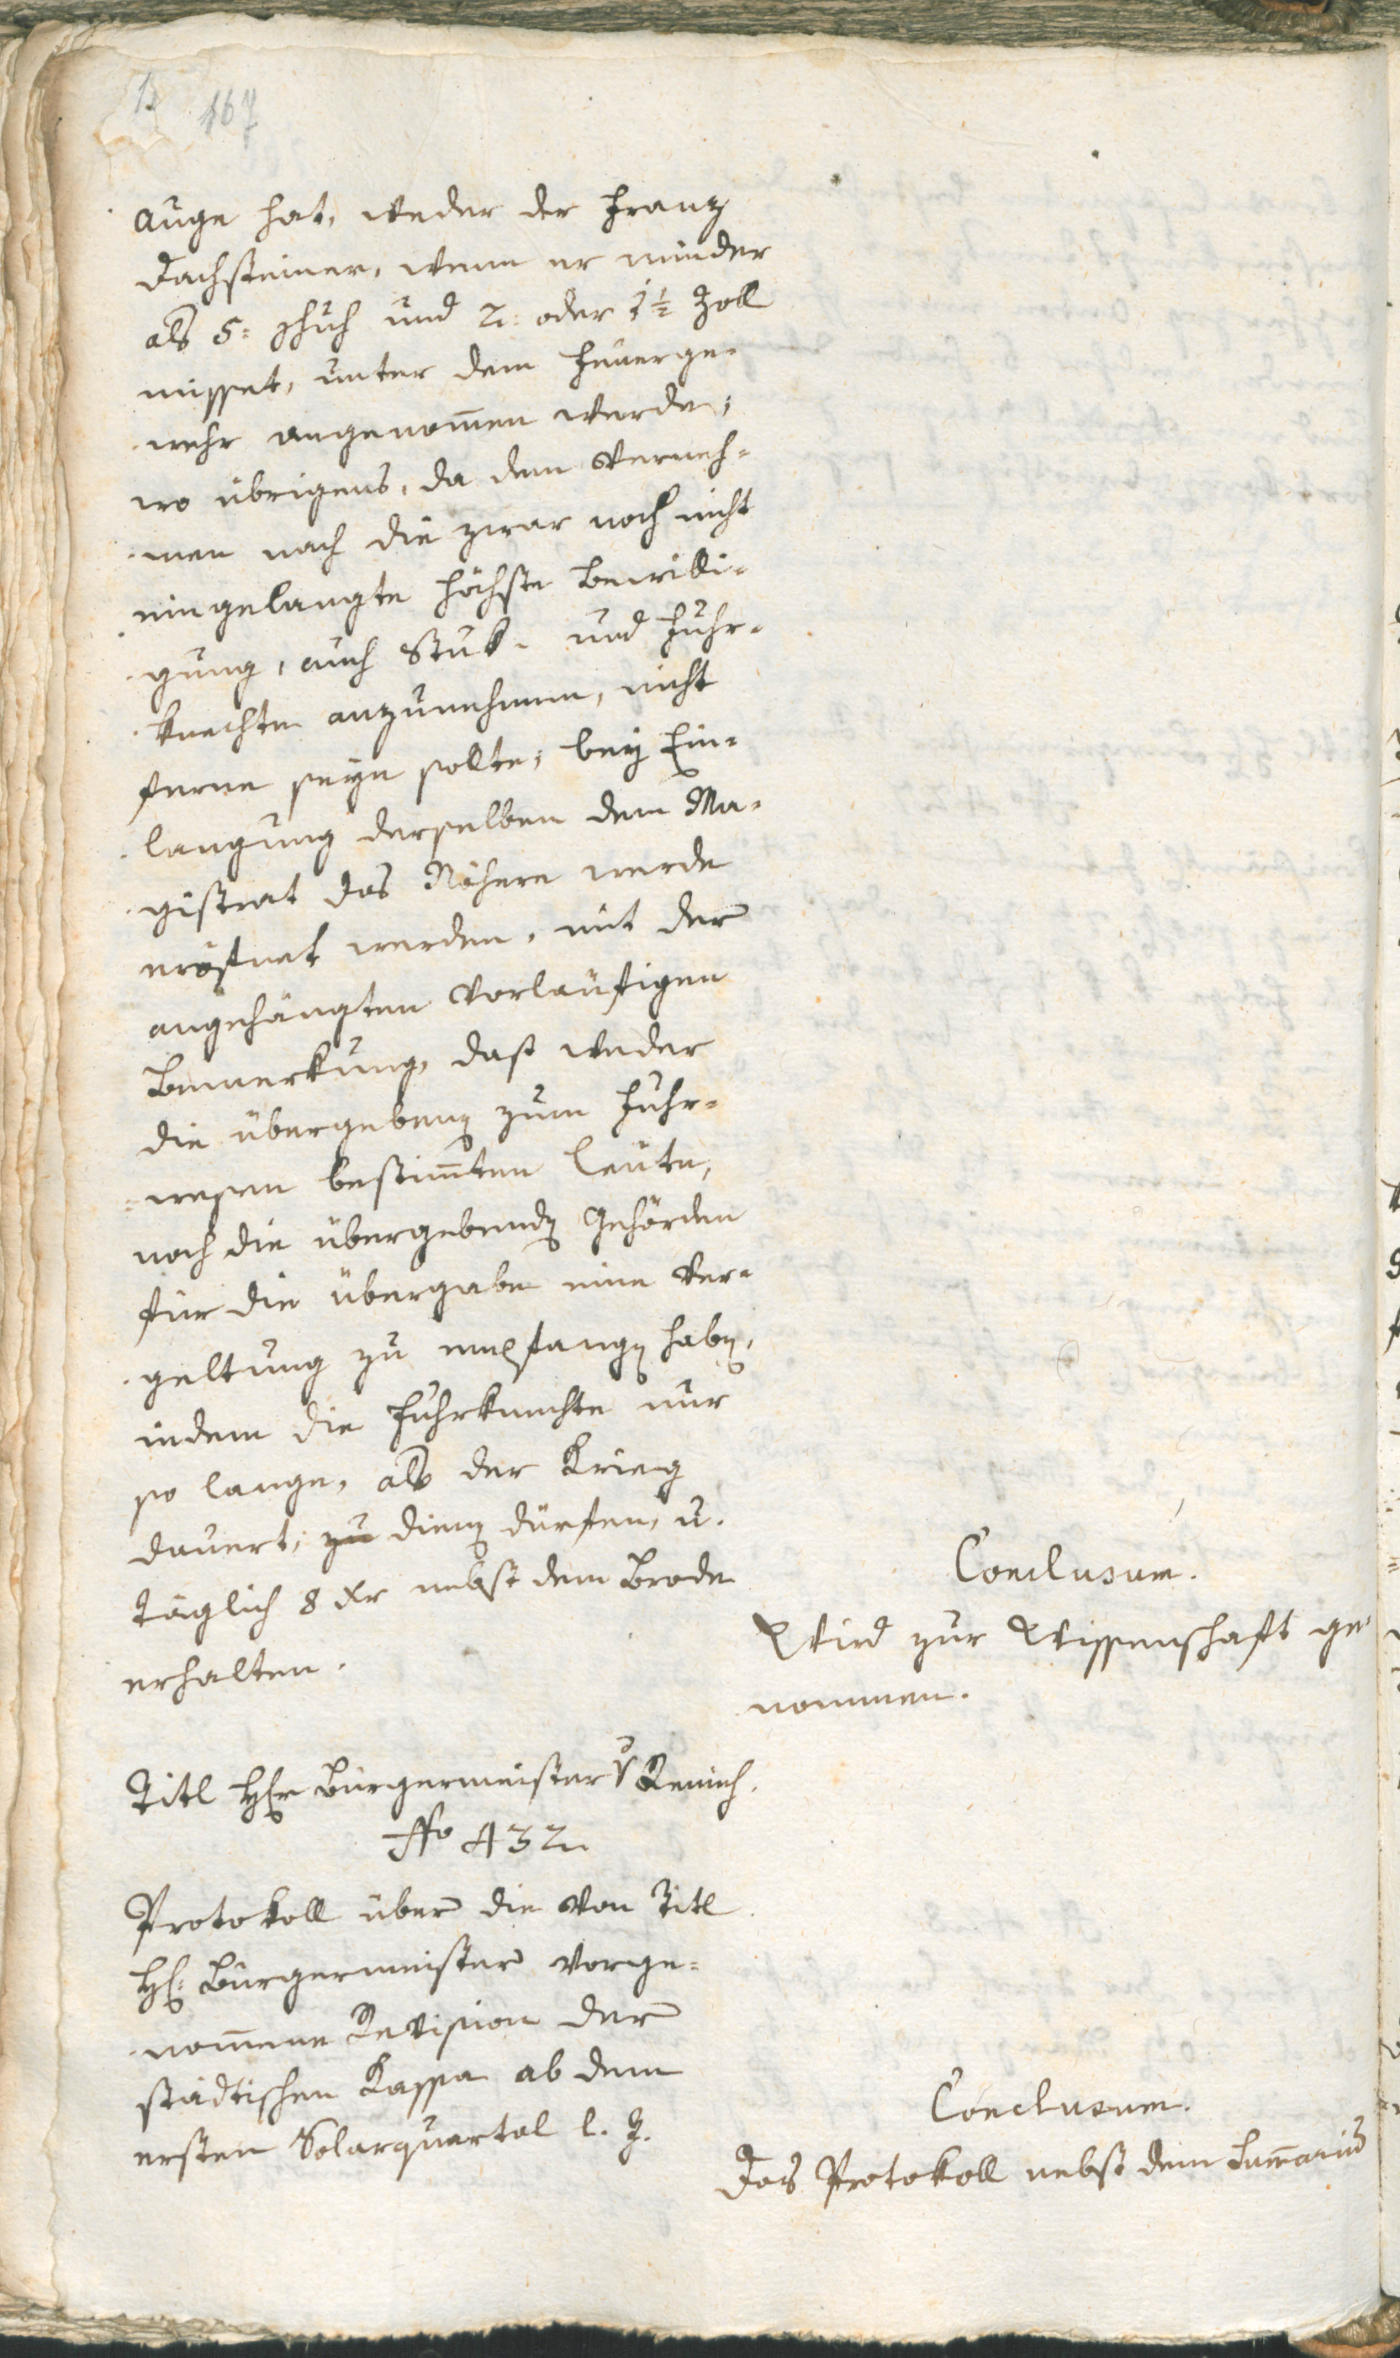 167
Auge hat, weder der Franz
Dachsteiner, wenn er minder
als 5: Schuh und 2: oder 1½ Zoll
misset, unter dem Feuerge-
wehr angenom̄en werde;
wo übrigens, da dem Verneh-
men nach die zwar noch nicht
eingelangte höchste Bewilli-
gung, auch Stuk- und Fuhr-
knechte anzunehmen, nicht
ferne seyn solte; bey Ein-
langung derselben dem Ma-
gistrat das Nähere werde
eröfnet werden, mit der
angehängten vorläufigen
Bemerkung, daß weder
die übergeben zum Fuhr-
wesen bestim̄ten Leute,
noch die übergebend Behörden
für die Übergabe eine Ver-
geltung zu empfangen haben,
indem die Fuhrknechte nur
so lange, als der Krieg
dauert, zu dienen dürfen, u.
täglich 8 Xr nebst dem Brode
erhalten.
Conclusum.
Wird zur Wissenschaft ge-
nommen.
Titl Hr Bürgermeister v
No 432.
Protokoll über die von Titl
H: Bürgermeister vorge-
nom̄ene Revision der
städtischen Kassa ab dem
ersten Solarquartal l. J.
Conclusum.
Das Protokoll nebst dem Sum̄ariũ